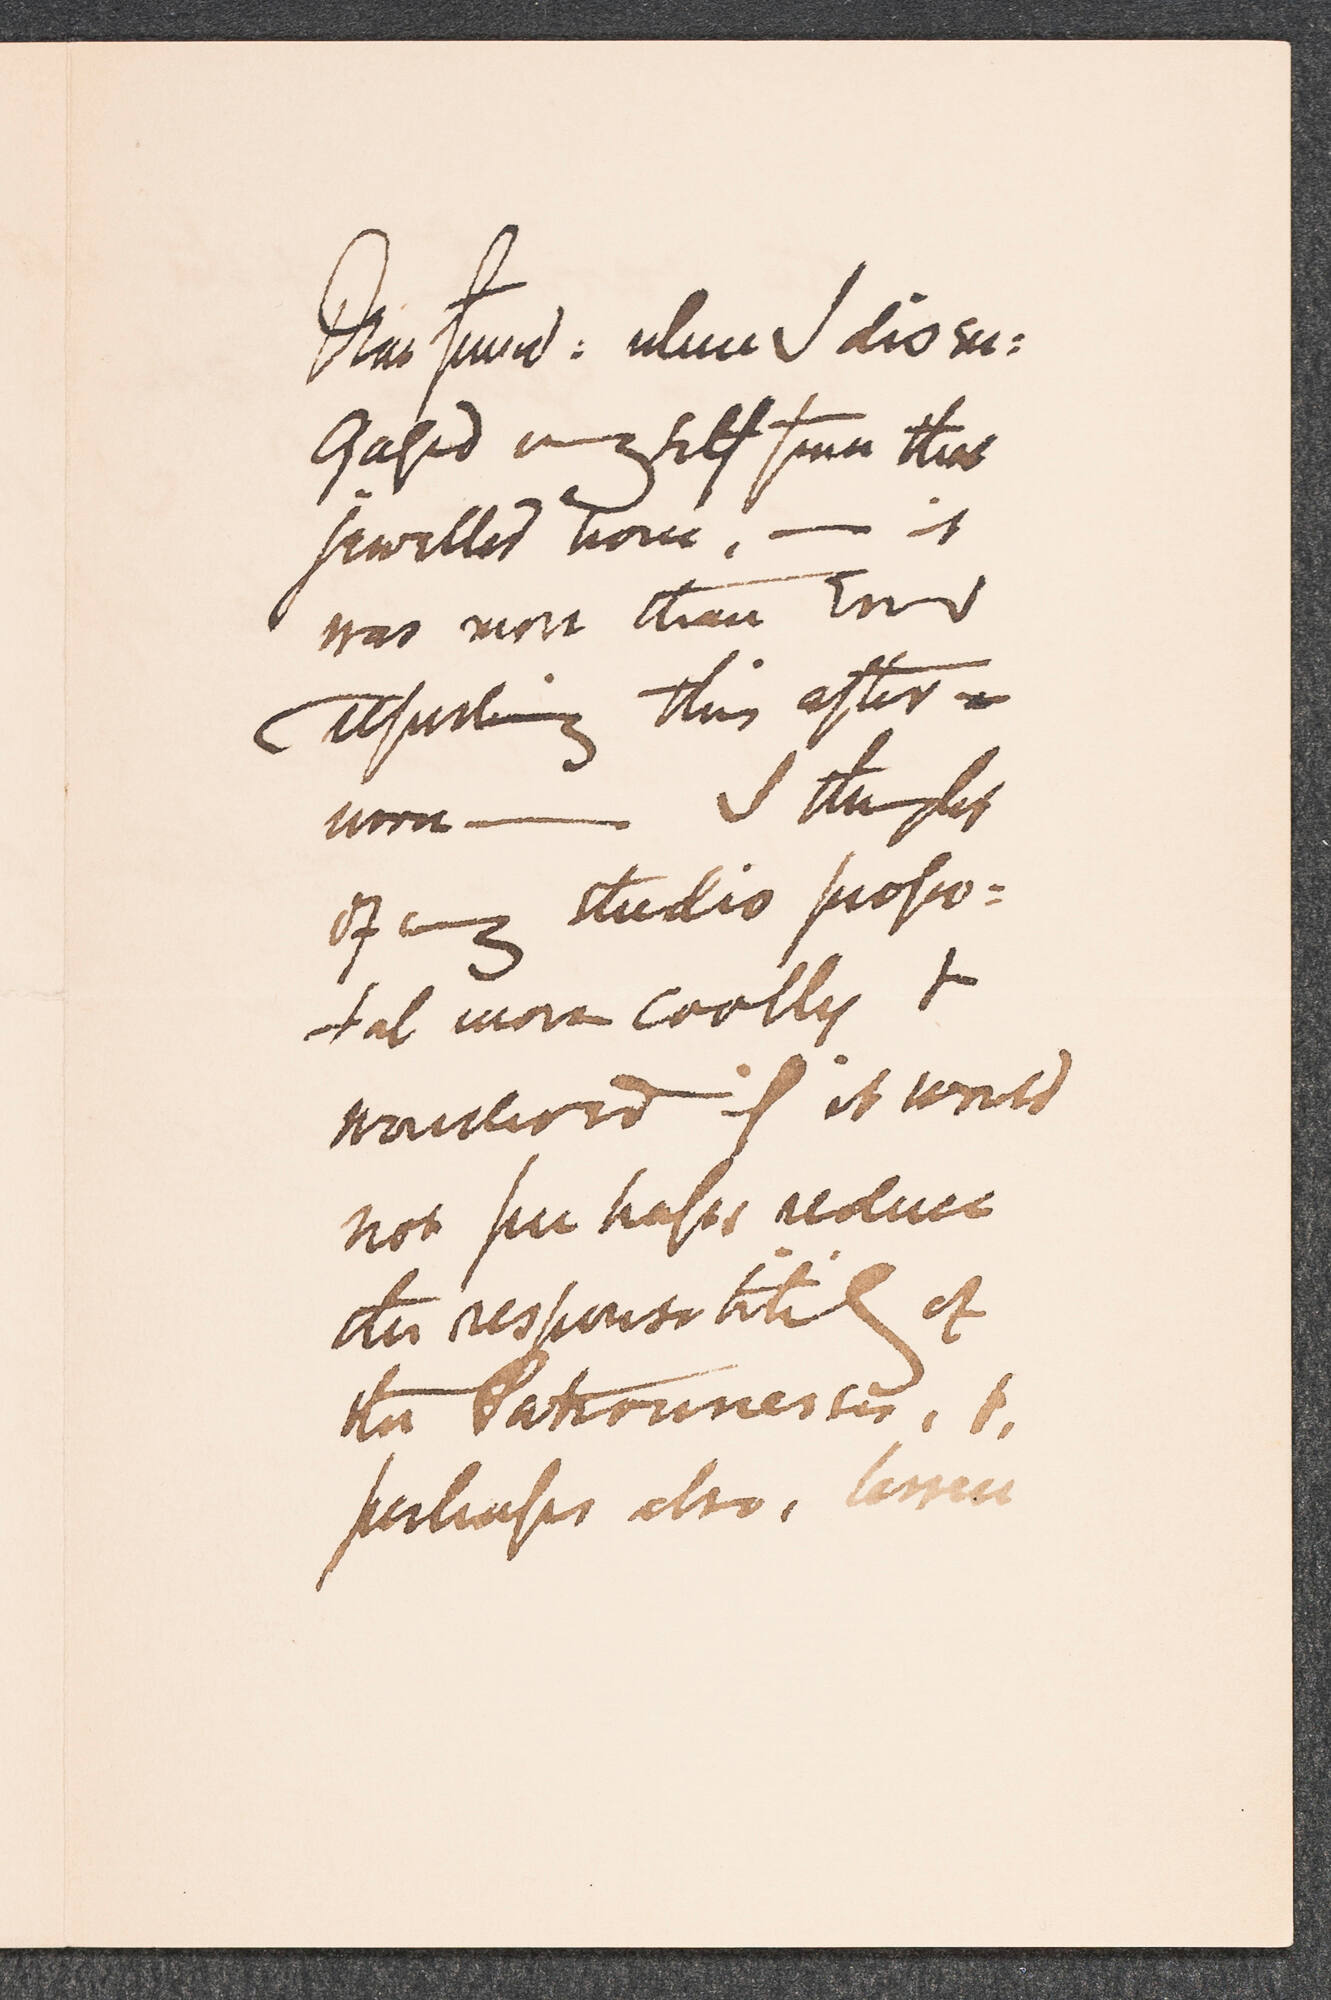 Dear friend: when I disen=
gaged myself from that
jewelled hour, — it
was more than kind
this after=
noon — I thought
of my studio propo=
sal more coolly &
wondered if it would
not perhaps reduce
the responsibility of
the Patronnesses, &,
perhaps also, lessen